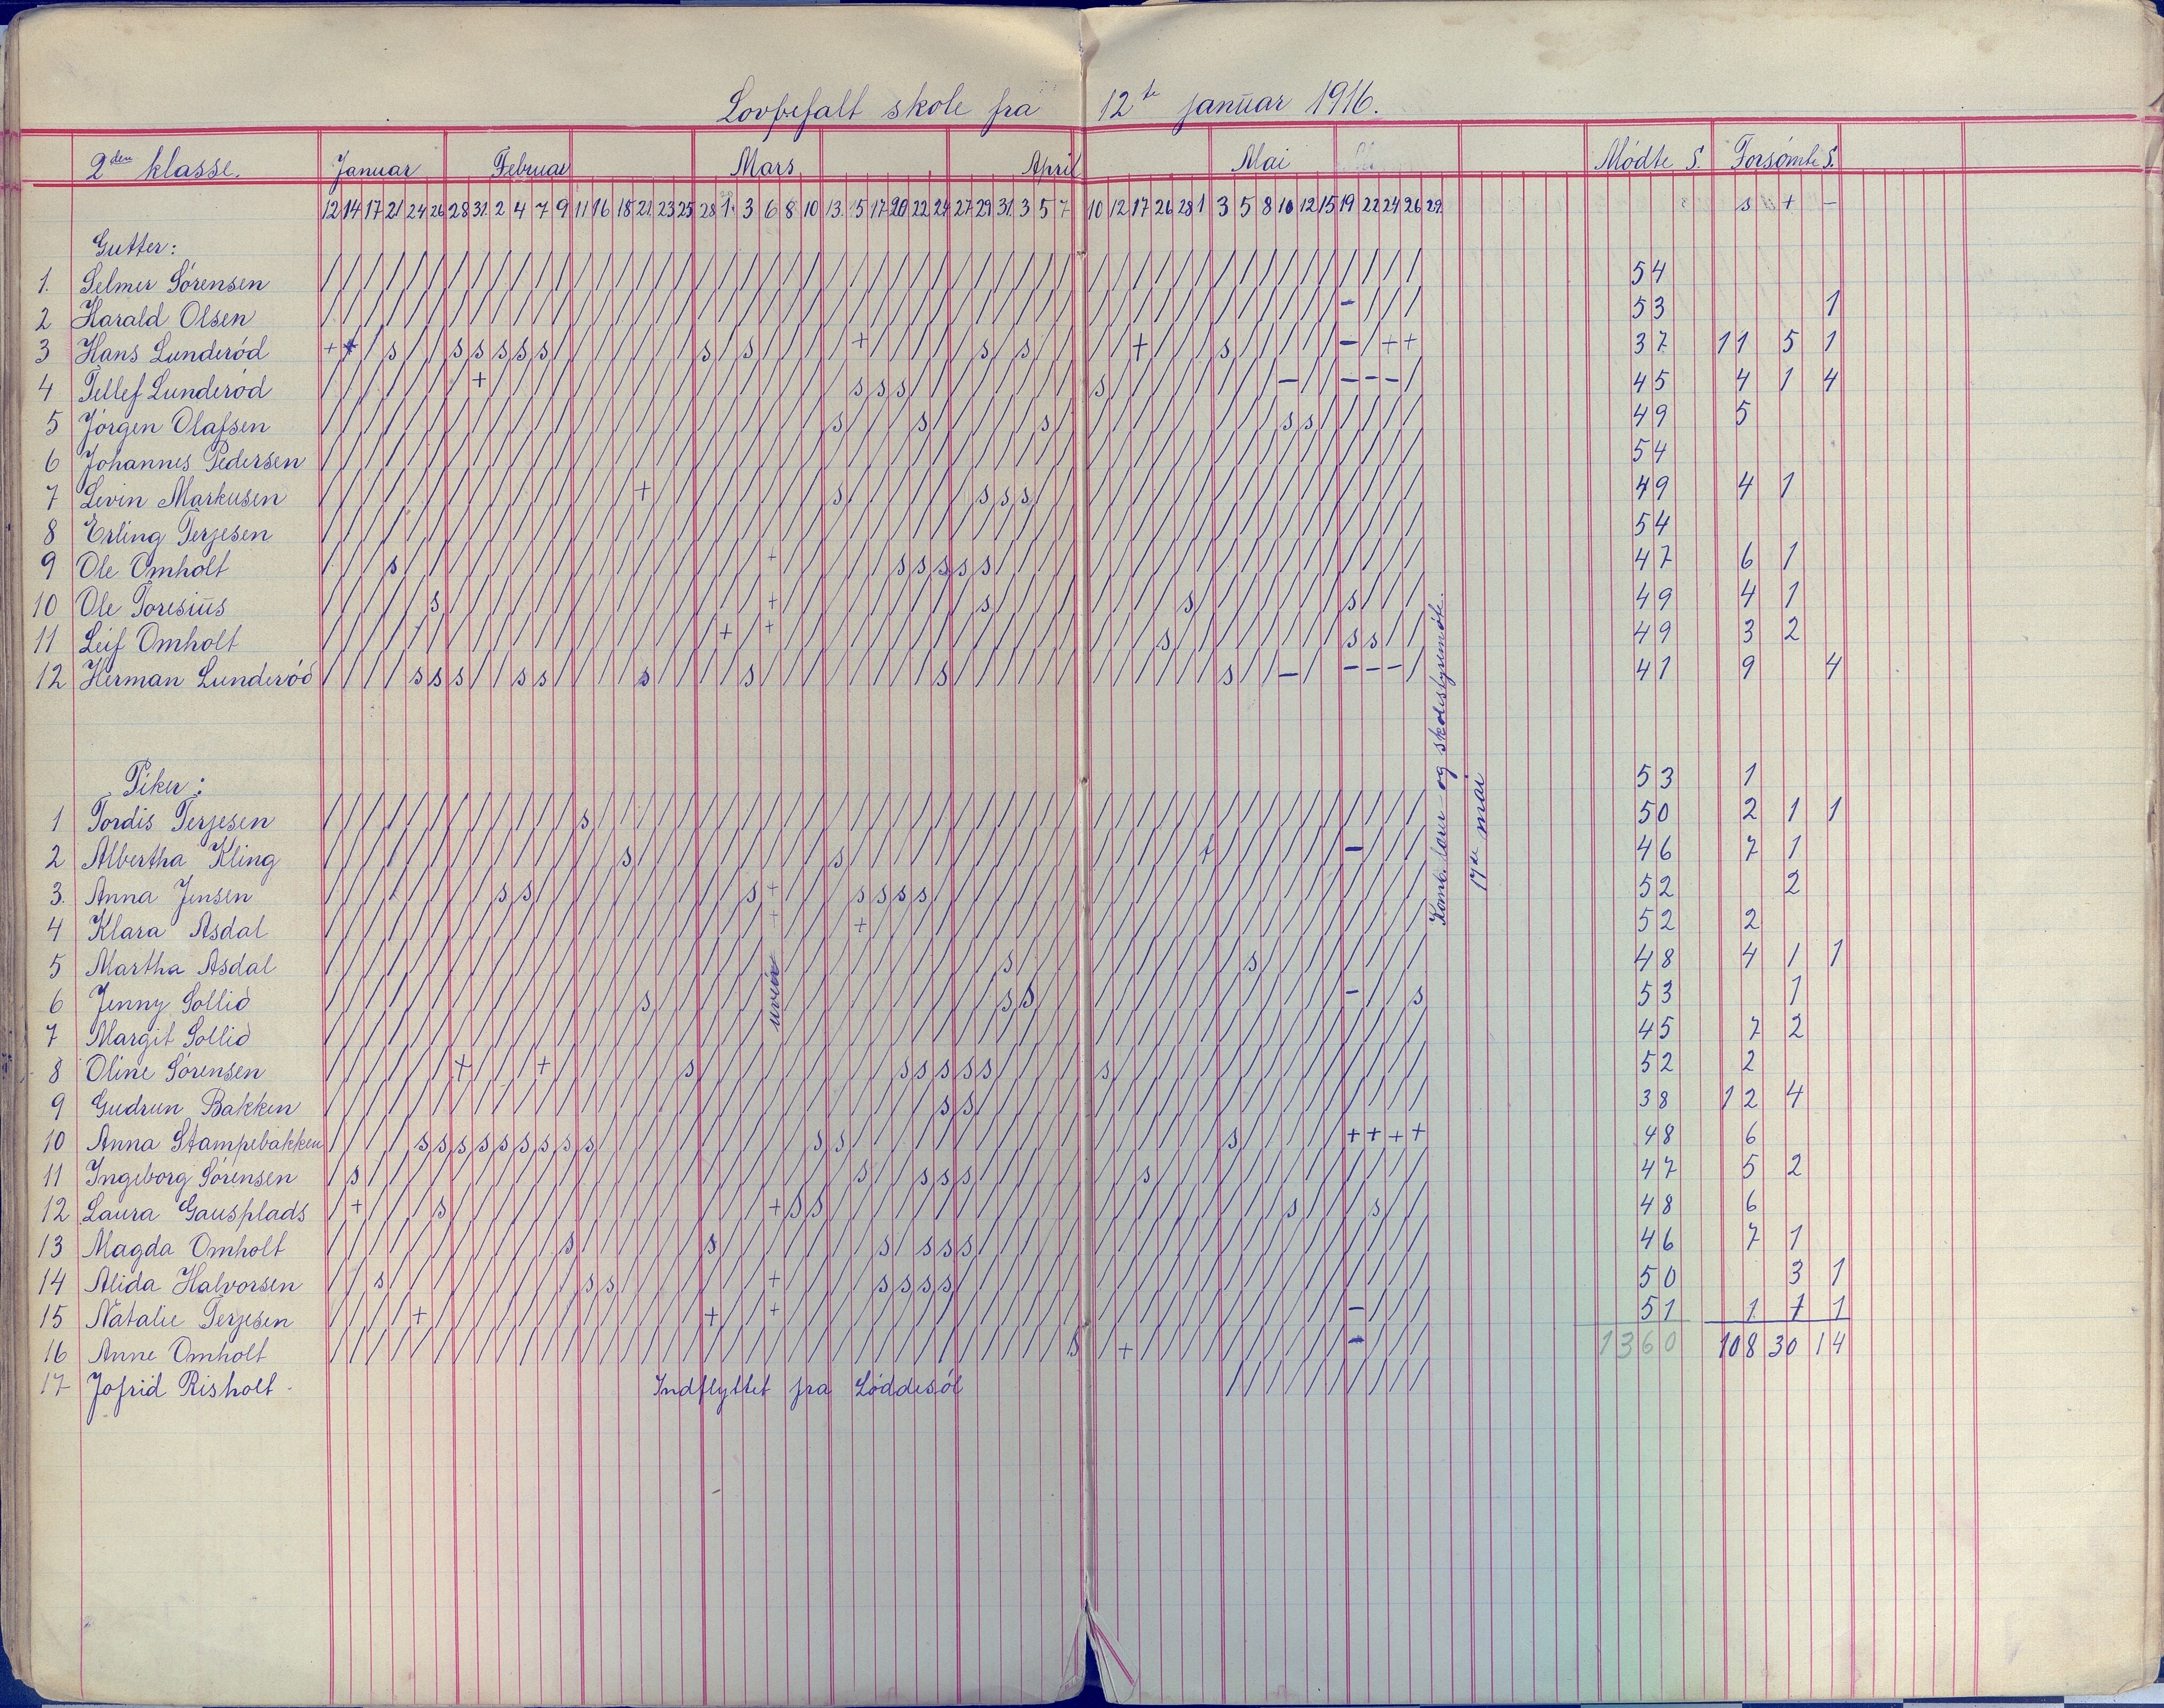 Lovbefalt skole fra 12te januar 1916.
2den klasse. Januar Februar Mars April Mai Mødte S. Forsømte S.
12 14 17 21 24 26 28 31 2 4 7 9 11 16 18 21 23 25 28 1. 3 6 8 10 13. 15 17 20 22 24 27 29 31 3 5 7 10 12 17 26 28 1 3 5 8 10 12 15 19 22 24 26 29 s + -
Gutter:
1. Selmer Sørensen / / / / / / / / / / / / / / / / / / / / / / / / / / / / / / / / / / / / / / / / / / / / / / / / / / / / 54
2 Harald Olsen / / / / / / / / / / / / / / / / / / / / / / / / / / / / / / / / / / / / / / / / / / / / / / / / - / / / 53 1
3 Hans Lunderød + + / s / / s s s s s / / / / / / / s / s / / / / + / / / / / s / s / / / / + / / / s / / / / / - / + + 37 11 5 1
4 Tellef Lunderød / / / / / / / + / / / / / / / / / / / / / / / / / s s s / / / / / / / / s / / / / / / / / - / / - - - / 45 4 1 4
5 Jørgen Olafsen / / / / / / / / / / / / / / / / / / / / / / / / s / / / s / / / / / s / / / / / / / / / / s s / / / / / 49 5
6 Johannes Pedersen / / / / / / / / / / / / / / / / / / / / / / / / / / / / / / / / / / / / / / / / / / / / / / / / / / / / 54
7 Levin Markusen / / / / / / / / / / / / / / / + / / / / / / / / s / / / / / / s s s / / / / / / / / / / / / / / / / / / 49 4 1
8 Erling Terjesen / / / / / / / / / / / / / / / / / / / / / / / / / / / / / / / / / / / / / / / / / / / / / / / / / / / / 54
9 Ole Omholt / / / s / / / / / / / / / / / / / / / / / + / / / / / s s s s s / / / / / / / / / / / / / / / / / / / / 47 6 1
10 Ole Toresius / / / / / s / / / / / / / / / / / / / / / + / / / / / / / / / s / / / / / / / / s / / / / / / / s / / / 49 4 1
11 Leif Omholt / / / / / / / / / / / / / / / / / / / + / + / / / / / / / / / / / / / / / / / s / / / / / / / / s s / / 49 3 2
12 Herman Lunderød / / / / s s s / / s s / / / / s / / / / s / / / / / / / / s / / / / / / / / / / / / s / / - / / - - - / 41 9 4
Piker: 53 1
1 Tordis Terjesen / / / / / / / / / / / / s / / / / / / / / / / / / / / / / / / / / / / / / / / / / / / / / / / / / / / / 50 2 1 1
2 Albertha Kling / / / / / / / / / / / / / / s / / / / / / / / / s / / / / / / / / / / / / / / / / + / / / / / / - / / / 46 7 1
3. Anna Jensen / / / / / / / / s s / / / / / / / / / / s + / / / s s s s / / / / / / / / / / / / / / / / / / / / / / / 52 2
4 Klara Asdal / / / / / / / / / / / / / / / / / / / / / + / / / + / / / / / / / / / / / / / / / / / / / / / / / / / / 52 2
5 Martha Asdal / / / / / / / / / / / / / / / / / / / / / / / / / / / / / / / / s / / / / / / / / / / s / / / / / / / / 48 4 1 1
6 Jenny Sollid / / / / / / / / / / / / / / / s / / / / / / / / / / / / / / / / s s / / / / / / / / / / / / / / - / / s 53 1
7 Margit Sollid / / / / / / / / / / / / / / / / / / / / / uveir / / / / / / / / / / / / / / / / / / / / / / / / / / / / / / 45 7 2
8 Oline Sørensen / / / / / / + / / / + / / / / / / s / / / / / / / / / s s s s s / / / / s / / / / / / / / / / / / / / / 52 2
9 Gudrun Bakken / / / / / / / / / / / / / / / / / / / / / / / / / / / / / s s / / / / / / / / / / / / / / / / / / / / / 38 12 4
10 Anna Stampebakken / / / / s s s s s s s s s / / / / / / / / / / s s / / / / / / / / / / / / / / / / / s / / / / / + + + + 48 6
11 Ingeborg Sørensen / s / / / / / / / / / / / / / / / / / / / / / / / s / / s s s / / / / / / / s / / / / / / / / / / / / / 47 5 2
12 Laura Gausplads / + / / / s / / / / / / / / / / / / / / / + s s / / / / / / / / / / / / / / / / / / / / / s / / / s / / 48 6
13 Magda Omholt / / / / / / / / / / / s / / / / / / s / / / / / / / s / s s s / / / / / / / / / / / / / / / / / / / / / 46 7 1
14 Alida Halvorsen / / s / / / / / / / / / s s / / / / / / / + / / / / s s s s / / / / / / / / / / / / / / / / / / / / / / 50 3 1
15 Natalie Terjesen / / / / + / / / / / / / / / / / / / + / / + / / / / / / / / / / / / / / / / / / / / / / / / / / - / / / 51 1 7 1
16 Anne Omholt / / / / / / / / / / / / / / / / / / / / / / / / / / / / / / / / / / / s / + / / / / / / / / / / - / / / 1360 108 30 14
17 Jofrid Risholt Indflyttet fra Løddesøl / / / / / / / / / /
Komb. lærer- og skolestyremøte.
17de mai